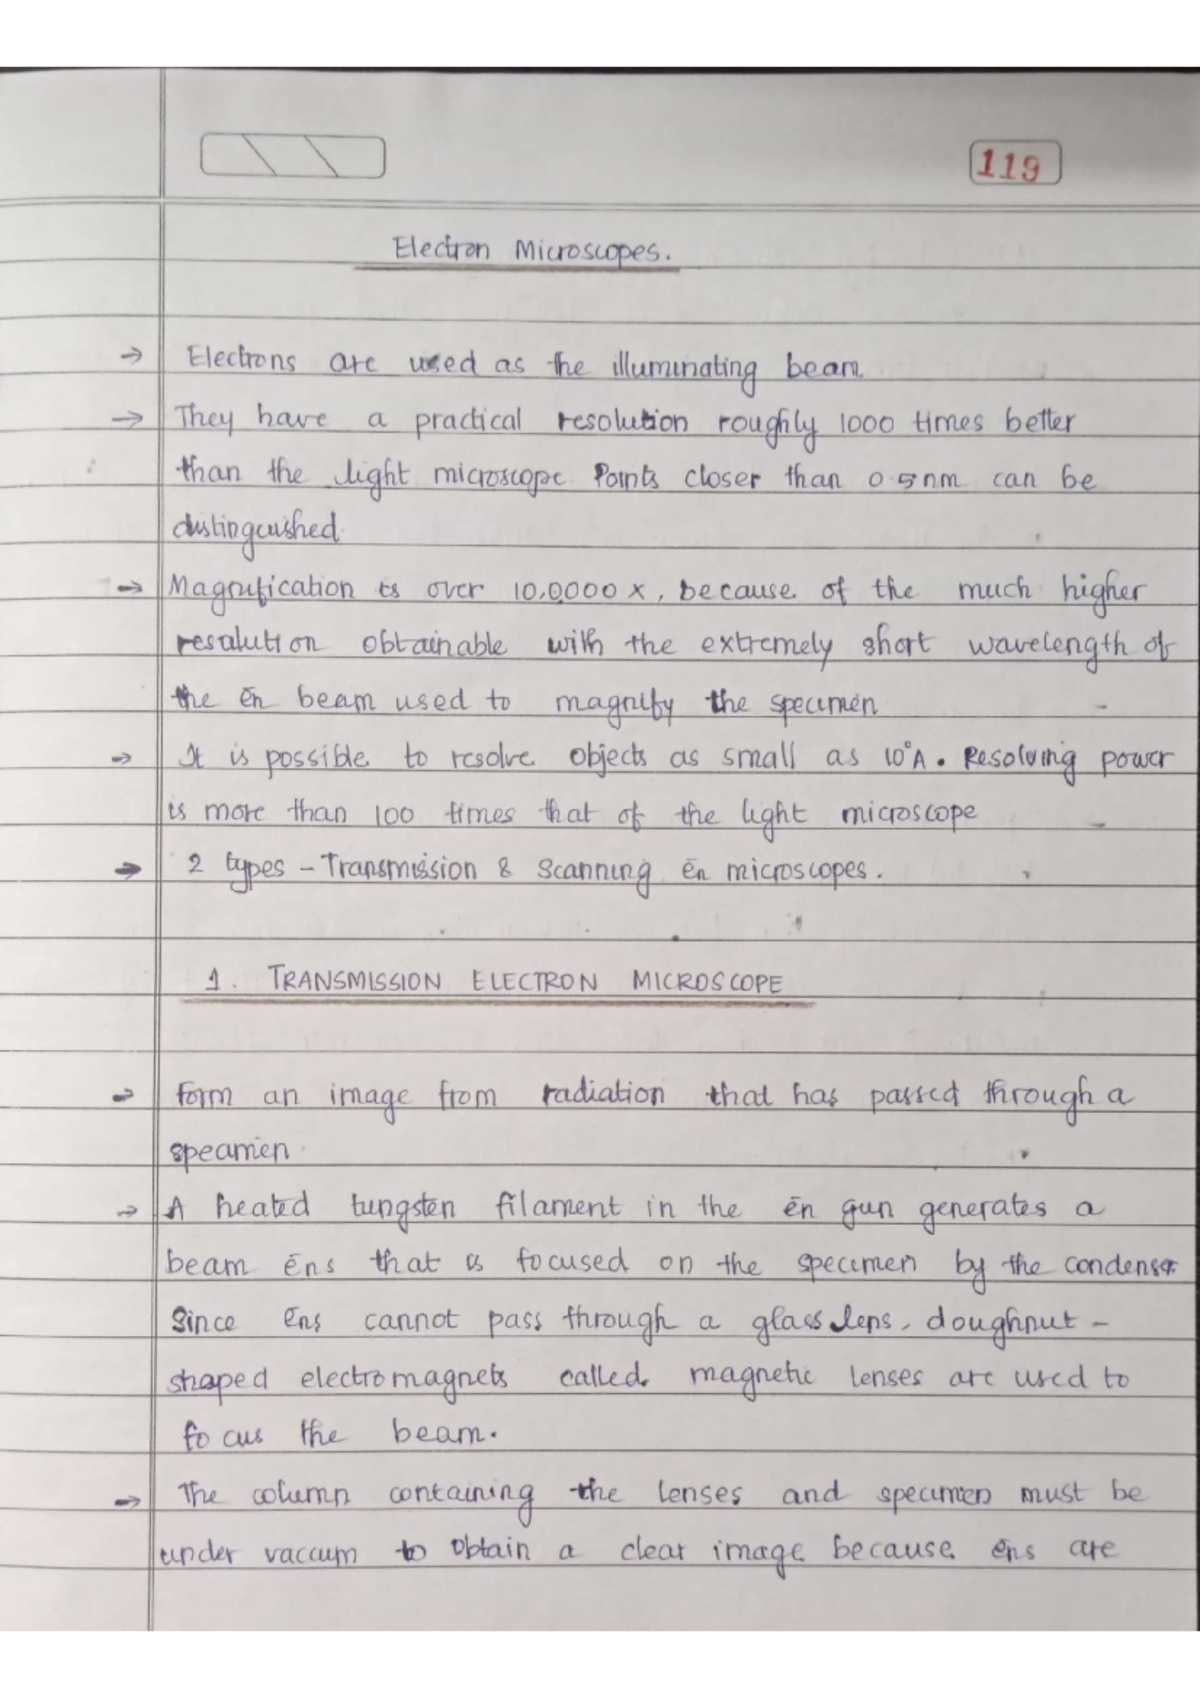 119
Electron Microscopes.
→ Electrons are used as the illuminating beam
→ They have a practical resolution roughly 1000 times better
than the light microscope. Points closer than 0.5nm can be
distinguished.
→ Magnification is over 10,0000 x, because of the much higher
resolution obtainable with the extremely short wavelength of
the ēn beam used to magnify the specimen
→ It is possible to resolve objects as small as 10°A. Resolving power
is more than 100 times that of the light microscope
→ 2 types - Transmission & Scanning ēn microscopes.
1. TRANSMISSION ELECTRON MICROSCOPE
→ form an image from radiation that has passed through a
specimen.
→ A heated tungsten filament in the ēn gun generates a
beam ēns that is focused on the specimen by the condenser
Since ēns cannot pass through a glass lens, doughnut -
shaped electromagnets called magnetic lenses are used to
focus the beam.
→ The column containing the lenses and specimen must be
under vaccum to obtain a clear image because ēns are